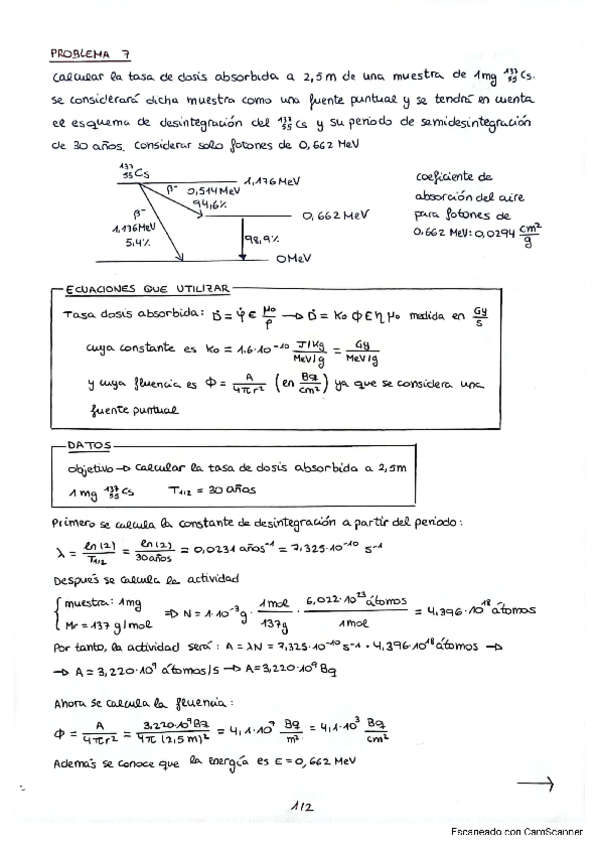 PROBLEMA 7
Calcular la tasa de dosis absorbida a 2,5 m de una muestra de 1mg ¹³⁷₅₅Cs.
se considerará dicha muestra como una fuente puntual y se tendrá en cuenta
el esquema de desintegración del ¹³⁷₅₅Cs y su periodo de semidesintegración
de 30 años. Considerar solo fotones de 0,662 MeV
¹³⁷₅₅Cs
1,176 MeV
β⁻ 0,514 MeV
94,6%
0,662 MeV
β⁻
1,176 MeV
5,4%
98,9%
0 MeV
coeficiente de
absorción del aire
para fotones de
0,662 MeV: 0,0294 cm²/g
ECUACIONES QUE UTILIZAR
Tasa dosis absorbida: Ḋ = φ̇ E μ₀/ρ → Ḋ = K₀ ϕ E η μ₀ medida en Gy/s
cuya constante es K₀ = 1.6·10⁻¹⁰ J/Kg / MeV/g = Gy / MeV/g
y cuya fluencia es ϕ = A/4πr² (en Bq/cm²) ya que se considera una
fuente puntual
DATOS
objetivo → calcular la tasa de dosis absorbida a 2,5m
1 mg ¹³⁷₅₅Cs T₁/₂ = 30 años
Primero se calcula la constante de desintegración a partir del periodo:
λ = ln(2)/T₁/₂ = ln(2)/30 años = 0,0231 años⁻¹ = 7,325·10⁻¹⁰ s⁻¹
Después se calcula la actividad
{ muestra: 1mg
Mr = 137 g/mol ⇒ N = 1·10⁻³g · 1mol/137g · 6,022·10²³ átomos/1mol = 4,396·10¹⁸ átomos
Por tanto, la actividad será: A = λN = 7,325·10⁻¹⁰ s⁻¹ · 4,396·10¹⁸ átomos →
→ A = 3,220·10⁹ átomos/s → A = 3,220·10⁹ Bq
Ahora se calcula la fluencia:
ϕ = A/4πr² = 3,220·10⁹ Bq/4π(2,5 m)² = 4,1·10⁷ Bq/m² = 4,1·10³ Bq/cm²
Además se conoce que la energía es E = 0,662 MeV
→
1/2
Escaneado con CamScanner